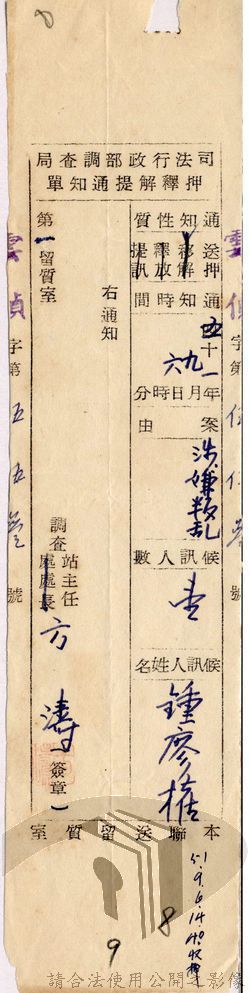 8
司法行政部調查局
押釋解提通知單
通知性質
送押
移解
釋放
提訊
通知時間
五十一年九月六日時分
案由
涉嫌叛亂
候訊人數
壹
候訊人姓名
鍾廖權
右通知
第一留質室
調查
站主任
處處長
方濤
簽章
雲偵字第五五叁號
雲偵字第 號
本聯送留質室
51.9.6.14.40收押
8
9
請合法使用公開之影像